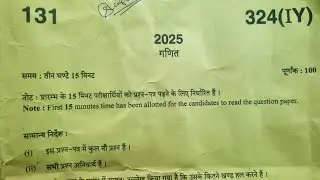 131
324(IY)
2025
गणित
समय : तीन घण्टे 15 मिनट
पूर्णांक : 100
नोट : प्रारम्भ के 15 मिनट परीक्षार्थियों को प्रश्न-पत्र पढ़ने के लिए निर्धारित हैं ।
Note : First 15 minutes time has been allotted for the candidates to read the question paper.
सामान्य निर्देश :
(i) इस प्रश्न-पत्र में कुल नौ प्रश्न हैं ।
(ii) सभी प्रश्न अनिवार्य हैं ।
किया गया है कि उसके कितने खण्ड हल करने हैं ।